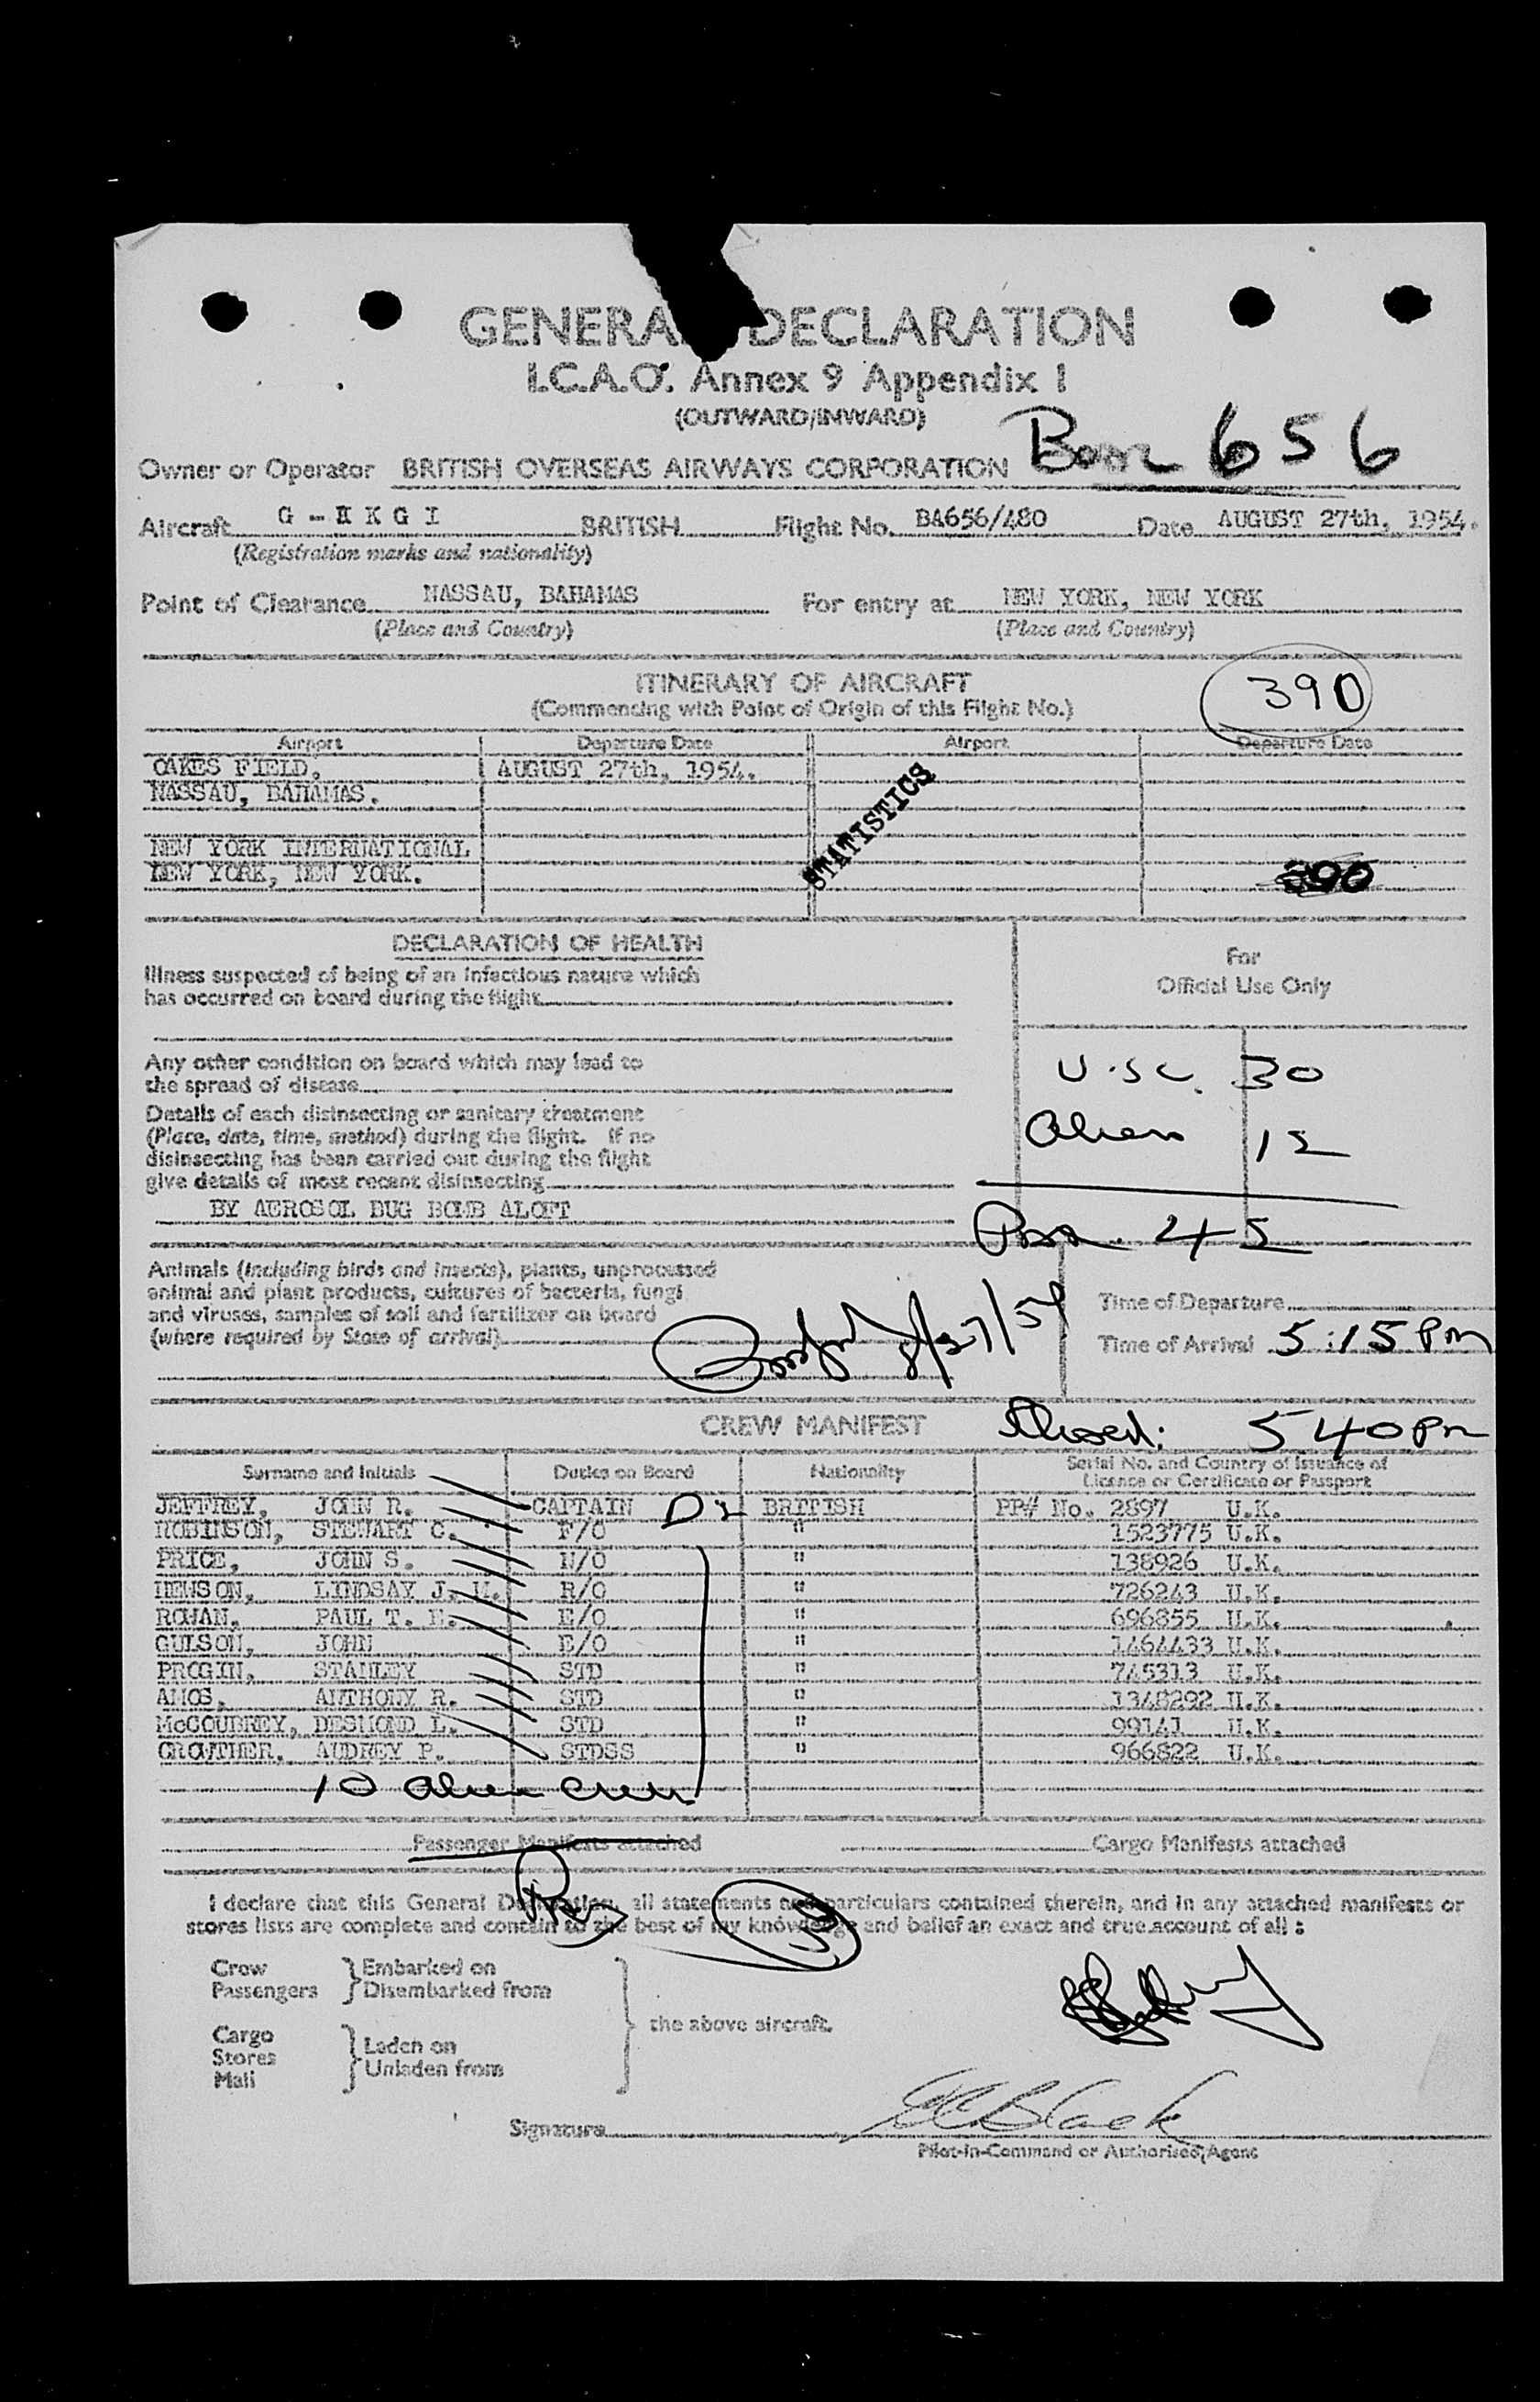 GENERA DECLARATION
I.C.A.O. Annex 9 Appendix I
(OUTWARD/INWARD)
656
Owner or Operator BRITISH OVERSEAS AIRWAYS CORPORATION
Aircraft G - K G I BRITISH Flight No. BA656/480 Date AUGUST 27th, 1954.
(Registration marks and nationality)
Point of Clearance NASSAU, BAHAMAS For entry at NEW YORK, NEW YORK
(Place and Country) (Place and Country)
390
ITINERARY OF AIRCRAFT
(Commencing with Point of Origin of this Flight No.)
Airport Departure Date Airport Departure Date
OAKES FIELD, AUGUST 27th, 1954.
NASSAU, BAHAMAS.
STATISTICS
NEW YORK INTERNATIONAL
NEW YORK, NEW YORK.
390
DECLARATION OF HEALTH
Illness suspected of being of an infectious nature which
has occurred on board during the flight
Any other condition on board which may lead to
the spread of disease
Details of each disinsecting or sanitary treatment
(Place, date, time, method) during the flight. If no
disinsecting has been carried out during the flight
give details of most recent disinsecting
BY AEROSOL BUG BOMB ALOFT
For
Official Use Only
U.S.C. 30
Alien 15
Pass. 45
Animals (including birds and insects), plants, unprocessed
animal and plant products, cultures of bacteria, fungi
and viruses, samples of soil and fertilizer on board
(where required by State of arrival)
8/27/54
Time of Departure
Time of Arrival 5:15 Pm
CREW MANIFEST
5 40 Pm
Surname and Initials Duties on Board Nationality Serial No. and Country of Issuance of
Licence or Certificate or Passport
JEFFREY, JOHN R. CAPTAIN D2 BRITISH PP# No. 2897 U.K.
ROBINSON, STEWART C. F/O " 1523775 U.K.
PRICE, JOHN S. N/O " 138926 U.K.
HEWSON, LINDSAY J. R/O " 726243 U.K.
ROWAN, PAUL T. E. E/O " 696855 U.K.
GULSON, JOHN E/O " 1464433 U.K.
PROGIN, STANLEY STD " 745313 U.K.
AMOS, ANTHONY R. STD " 1348292 U.K.
McCOUBREY, DESMOND L. STD " 99141 U.K.
CROWTHER, AUDREY P. STDSS " 966822 U.K.
10 alien crew
Passenger Manifests attached Cargo Manifests attached
I declare that this General Declaration, all statements and particulars contained therein, and in any attached manifests or
stores lists are complete and contain to the best of my knowledge and belief an exact and true account of all :
Crew
Passengers
Embarked on
Disembarked from
Cargo
Stores
Mail
Laden on
Unladen from
the above aircraft.
Signature Black
Pilot-in-Command or Authorised Agent